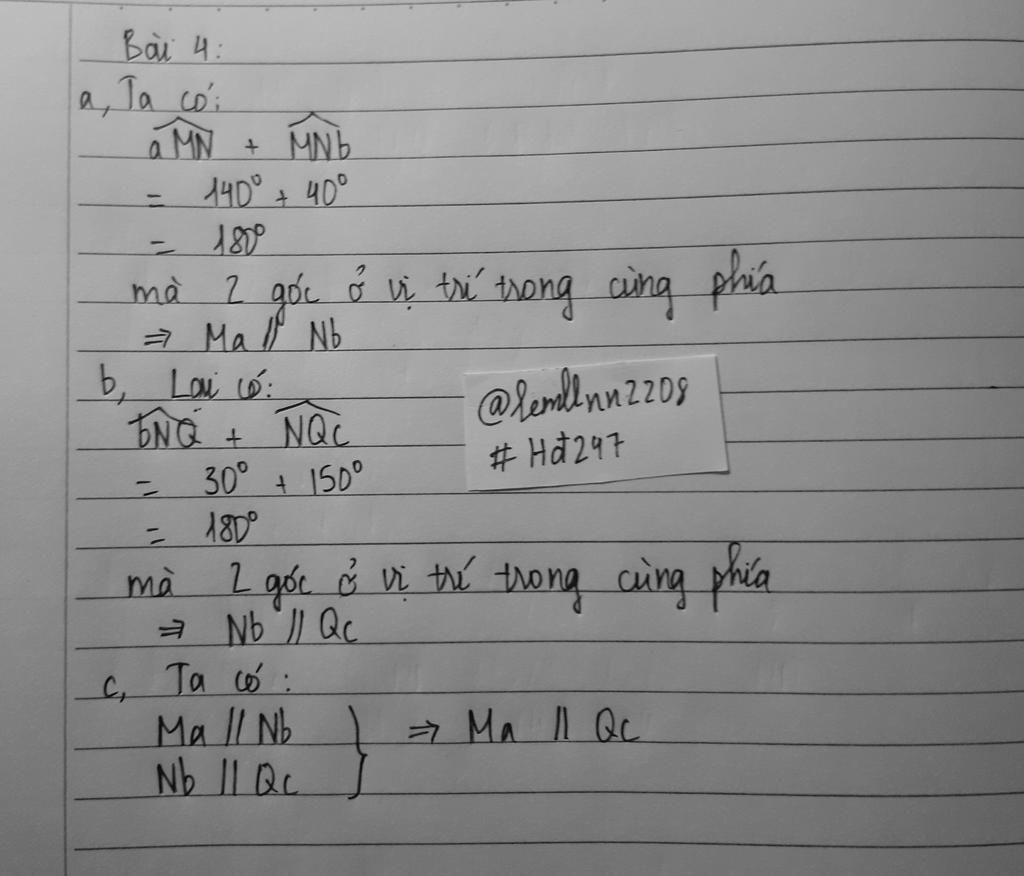 Bài 4:
a, Ta có:
aMN + MNb
= 140° + 40°
= 180°
mà 2 góc ở vị trí trong cùng phía
⇒ Ma // Nb
b, Lại có:
bNQ + NQc
= 30° + 150°
= 180°
mà 2 góc ở vị trí trong cùng phía
⇒ Nb // Qc
c, Ta có:
Ma // Nb } ⇒ Ma // Qc
Nb // Qc
#Hđ247